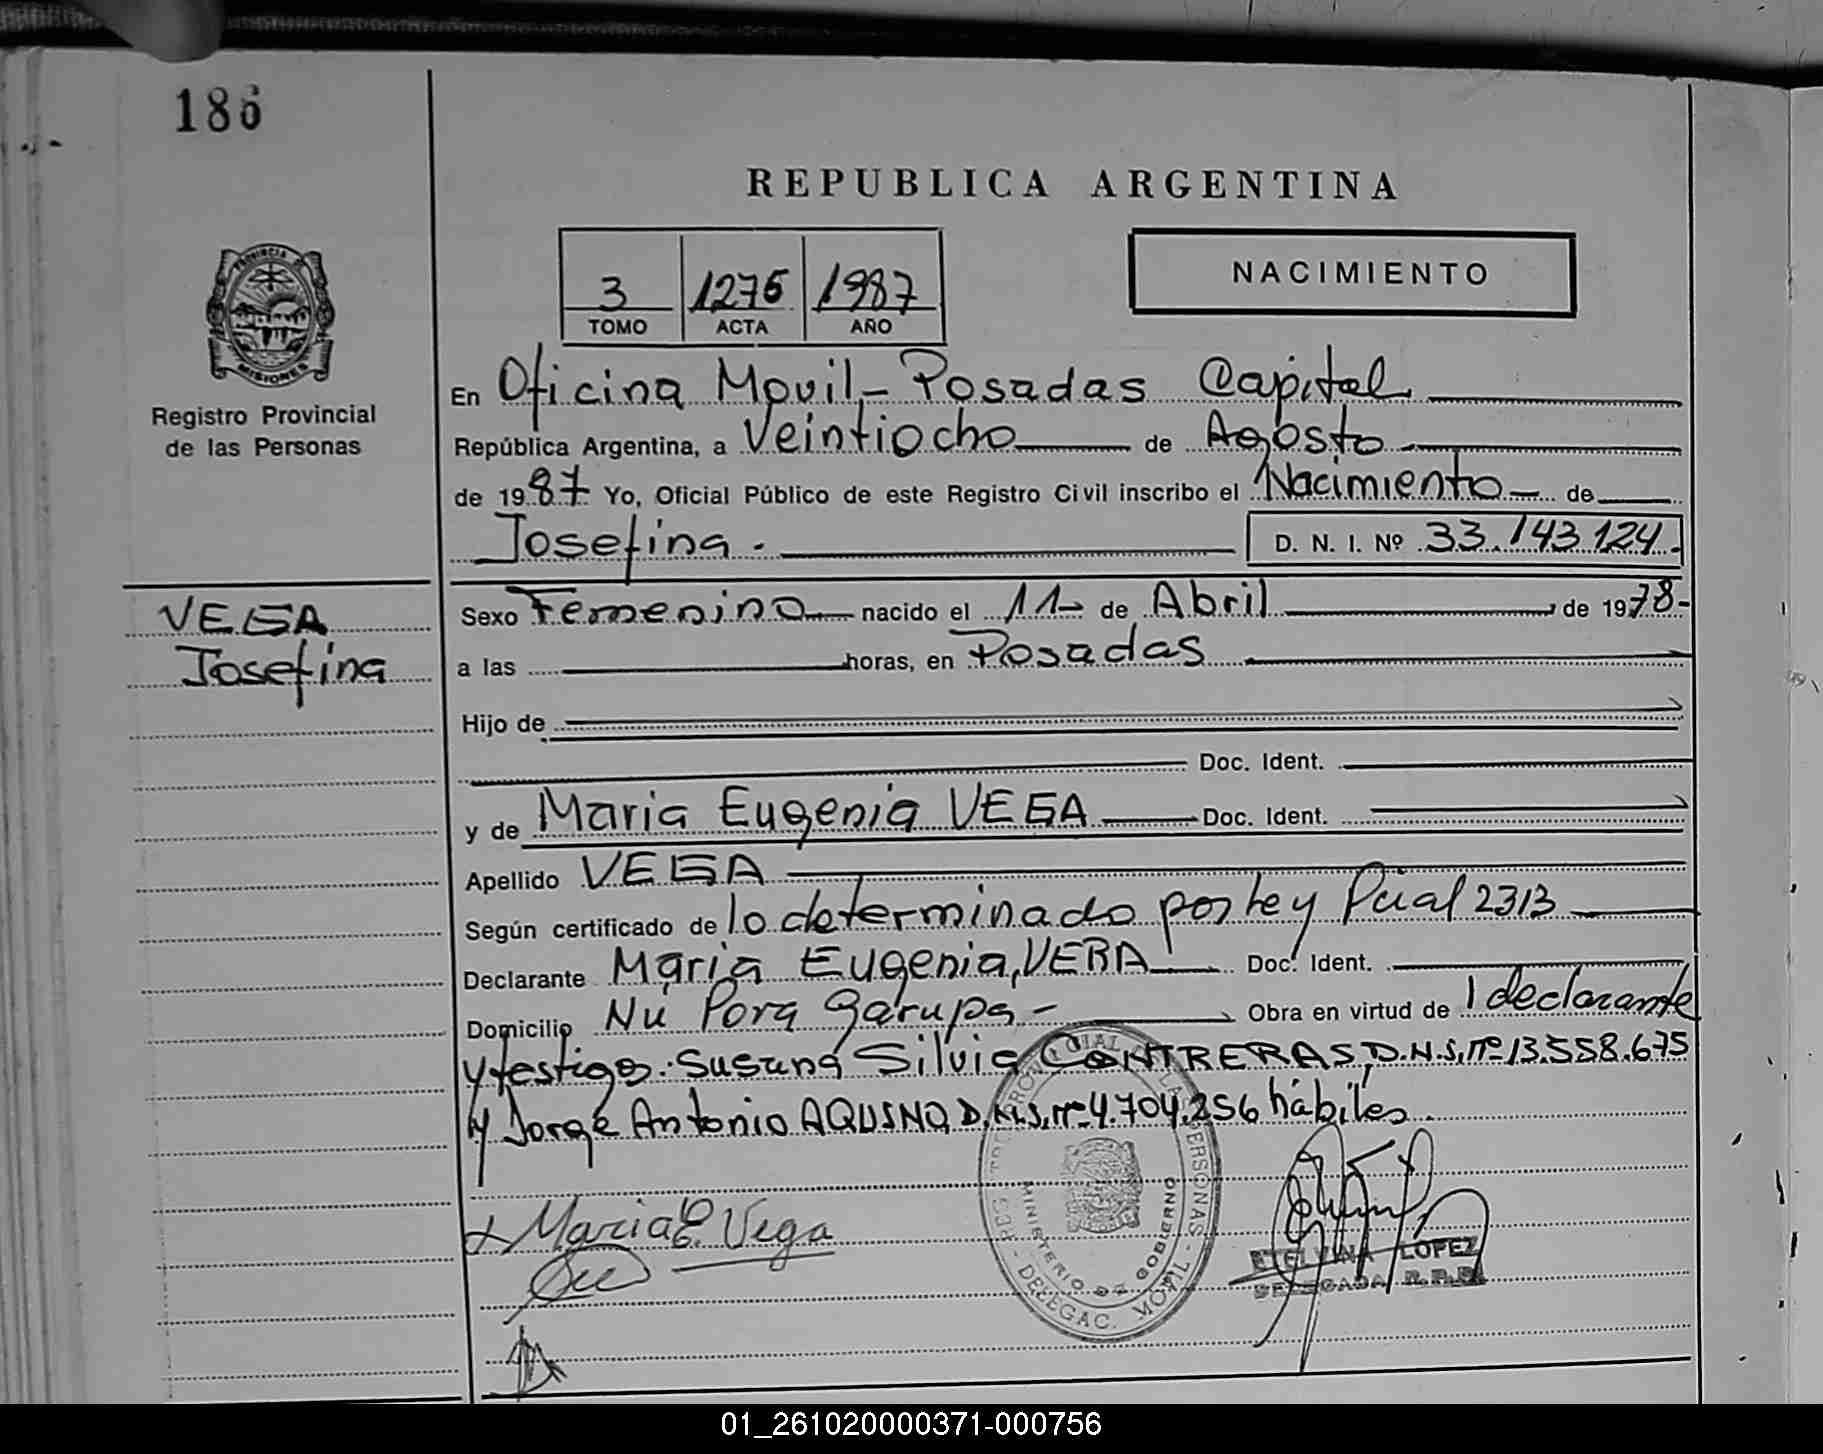 186
REPUBLICA ARGENTINA
3 1276 1987
TOMO ACTA AÑO
NACIMIENTO
PROVINCIA DE
MISIONES
Registro Provincial
de las Personas
En Oficina Movil - Posadas Capital
República Argentina, a Veintiocho de Agosto
de 1987 Yo, Oficial Público de este Registro Civil inscribo el Nacimiento de
Josefina. D. N. I. Nº 33.143.124.
VEGA
Josefina
Sexo Femenino nacido el 11 de Abril de 1978-
a las horas, en Posadas
Hijo de
Doc. Ident.
y de Maria Eugenia VEGA Doc. Ident.
Apellido VEGA
Según certificado de lo determinado por ley Pcial 2313
Declarante Maria Eugenia, VERA Doc. Ident.
Domicilio Ñu Pora Garupa - Obra en virtud de l declarante
y testigos. Susana Silvia CONTRERAS, D.N.I. nº 13.558.675
y Jorge Antonio AQUINO, D.N.I. nº 4.704.256 hábiles.
Maria E. Vega
MINISTERIO DE GOBIERNO
DELEGAC. MOVIL
ETELVINA LOPEZ
DELEGADA R.P.P.
01_261020000371-000756